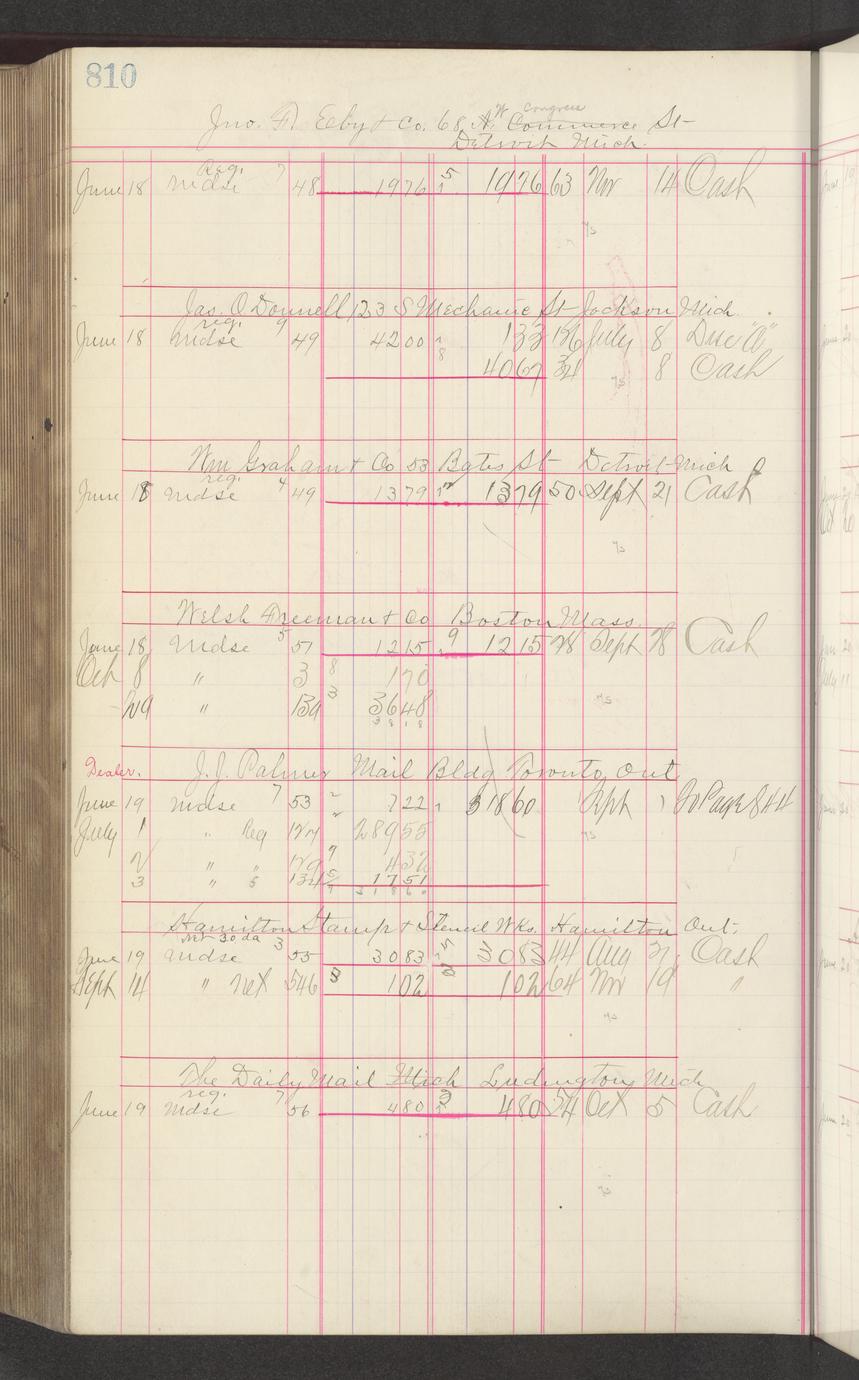 810
Jno. F. Eby & Co. 68 W Congress St
Detroit Mich.
June 18 Reg. Mdse 7 48 1976 5 1976 63 Nov 14 Cash
Jas. O'Donnell 123 S Mechanic St Jackson Mich.
June 18 reg. Mdse 9 49 4200 133 136 July 8 Disc "A"
8 4067 34 8 Cash
Wm Graham & Co 53 Bates St Detroit Mich
June 18 reg. Mdse 4 49 1379 1379 50 Sept 21 Cash
Welsh Freeman & Co Boston Mass.
June 18 Mdse 5 51 1215 9 1215 28 Sept 28 Cash
Oct 8 " 3 8 170
29 " 139 3 3648
3818
Dealer. J. J. Palmer Mail Bldg Toronto Ont
June 19 Mdse 7 53 722 31860 Sept 1 To Page 844
July 1 " Reg 127 28955
2 " " 129 9 432
3 " " 134 1751
31860
Hamilton Stamp & Stencil Wks. Hamilton Ont.
Net 30 da
June 19 Mdse 3 55 3083 3083 44 Aug 21 Cash
Sept 14 " net 546 102 102 64 Nov 19 "
The Daily Mail Mich Ludington Mich
June 19 reg. Mdse 7 56 480 480 54 Oct 5 Cash